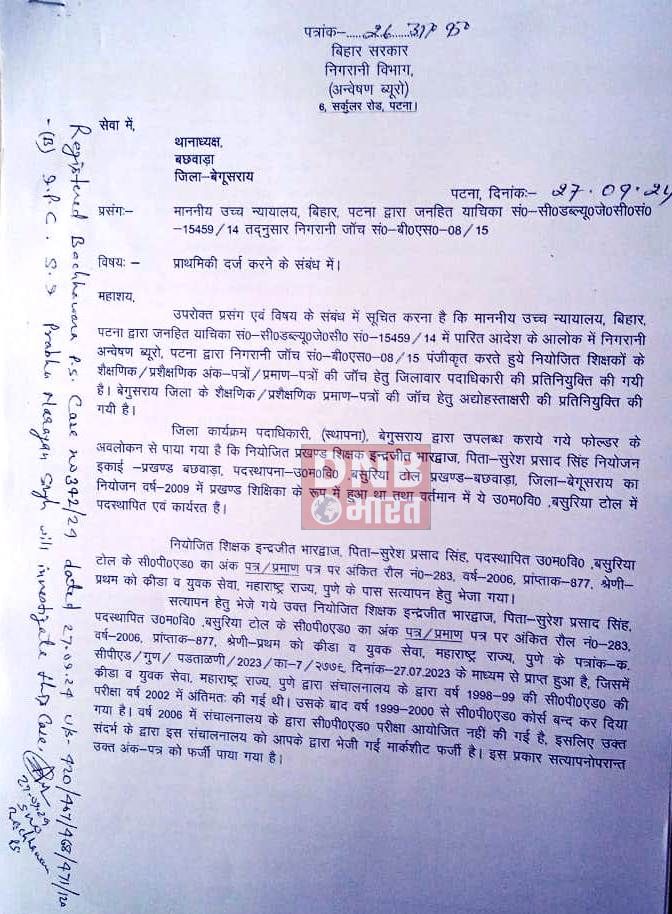 पत्रांक-.....26.....अ० प्र०
बिहार सरकार
निगरानी विभाग,
(अन्वेषण ब्यूरो)
6, सर्कुलर रोड, पटना।
सेवा में,
थानाध्यक्ष,
बछवाड़ा
जिला-बेगूसराय
पटना, दिनांकः- 27.09.24
प्रसंगः- माननीय उच्च न्यायालय, बिहार, पटना द्वारा जनहित याचिका सं०-सी०डब्ल्यू०जे०सी०सं०
-15459/14 तद्नुसार निगरानी जाँच सं०-बी०एस०-08/15
विषयः - प्राथमिकी दर्ज करने के संबंध में।
महाशय,
उपरोक्त प्रसंग एवं विषय के संबंध में सूचित करना है कि माननीय उच्च न्यायालय, बिहार,
पटना द्वारा जनहित याचिका सं०-सी०डब्ल्यू०जे०सी० सं०-15459/14 में पारित आदेश के आलोक में निगरानी
अन्वेषण ब्यूरो, पटना द्वारा निगरानी जाँच सं०-बी०एस०-08/15 पंजीकृत करते हुये नियोजित शिक्षकों के
शैक्षणिक/प्रशैक्षणिक अंक-पत्रों/प्रमाण-पत्रों की जाँच हेतु जिलावार पदाधिकारी की प्रतिनियुक्ति की गयी
है। बेगुसराय जिला के शैक्षणिक/प्रशैक्षणिक प्रमाण-पत्रों की जाँच हेतु अद्योहस्ताक्षरी की प्रतिनियुक्ति की
गयी है।
जिला कार्यक्रम पदाधिकारी, (स्थापना), बेगुसराय द्वारा उपलब्ध कराये गये फोल्डर के
अवलोकन से पाया गया है कि नियोजित प्रखण्ड शिक्षक इन्द्रजीत भारद्वाज, पिता-सुरेश प्रसाद सिंह नियोजन
इकाई -प्रखण्ड बछवाड़ा, पदस्थापना-उ०म०वि० ,बसुरिया टोल प्रखण्ड-बछवाड़ा, जिला-बेगुसराय का
नियोजन वर्ष-2009 में प्रखण्ड शिक्षिका के रूप में हुआ था तथा वर्तमान में ये उ०म०वि० ,बसुरिया टोल में
पदस्थापित एवं कार्यरत हैं।
BNB
भारत
नियोजित शिक्षक इन्द्रजीत भारद्वाज, पिता-सुरेश प्रसाद सिंह, पदस्थापित उ०म०वि० ,बसुरिया
टोल के सी०पी०एड० का अंक पत्र/प्रमाण पत्र पर अंकित रौल नं०-283, वर्ष-2006, प्राप्तांक-877, श्रेणी-
प्रथम को कीडा व युवक सेवा, महाराष्ट्र राज्य, पुणे के पास सत्यापन हेतु भेजा गया।
सत्यापन हेतु भेजे गये उक्त नियोजित शिक्षक इन्द्रजीत भारद्वाज, पिता-सुरेश प्रसाद सिंह,
पदस्थापित उ०म०वि० ,बसुरिया टोल के सी०पी०एड० का अंक पत्र/प्रमाण पत्र पर अंकित रौल नं०-283,
वर्ष-2006, प्राप्तांक-877, श्रेणी-प्रथम को कीडा व युवक सेवा, महाराष्ट्र राज्य, पुणे के पत्रांक-क.
सीपीएड/गुण/ पडताळणी/2023/का-7/२७७६ दिनांक-27.07.2023 के माध्यम से प्राप्त हुआ है, जिसमें
कीडा व युवक सेवा, महाराष्ट्र राज्य, पुणे द्वारा संचालनालय के द्वारा वर्ष 1998-99 की सी०पी०एड० की
परीक्षा वर्ष 2002 में अंतिमतः की गई थी। उसके बाद वर्ष 1999-2000 से सी०पी०एड० कोर्स बन्द कर दिया
गया है। वर्ष 2006 में संचालनालय के द्वारा सी०पी०एड० परीक्षा आयोजित नहीं की गई है, इसलिए उक्त
संदर्भ के द्वारा इस संचालनालय को आपके द्वारा भेजी गई मार्कशीट फर्जी है। इस प्रकार सत्यापनोपरान्त
उक्त अंक-पत्र को फर्जी पाया गया है।
Registered Bachhawara P.S. Case no 342/24 dated 27.09.24 u/s- 420/467/468/471/120
-(B) I.P.C. S.I Prabhu Narayan Singh will investigate this Case.
27.09.24
SHO
Bachhawara
PS